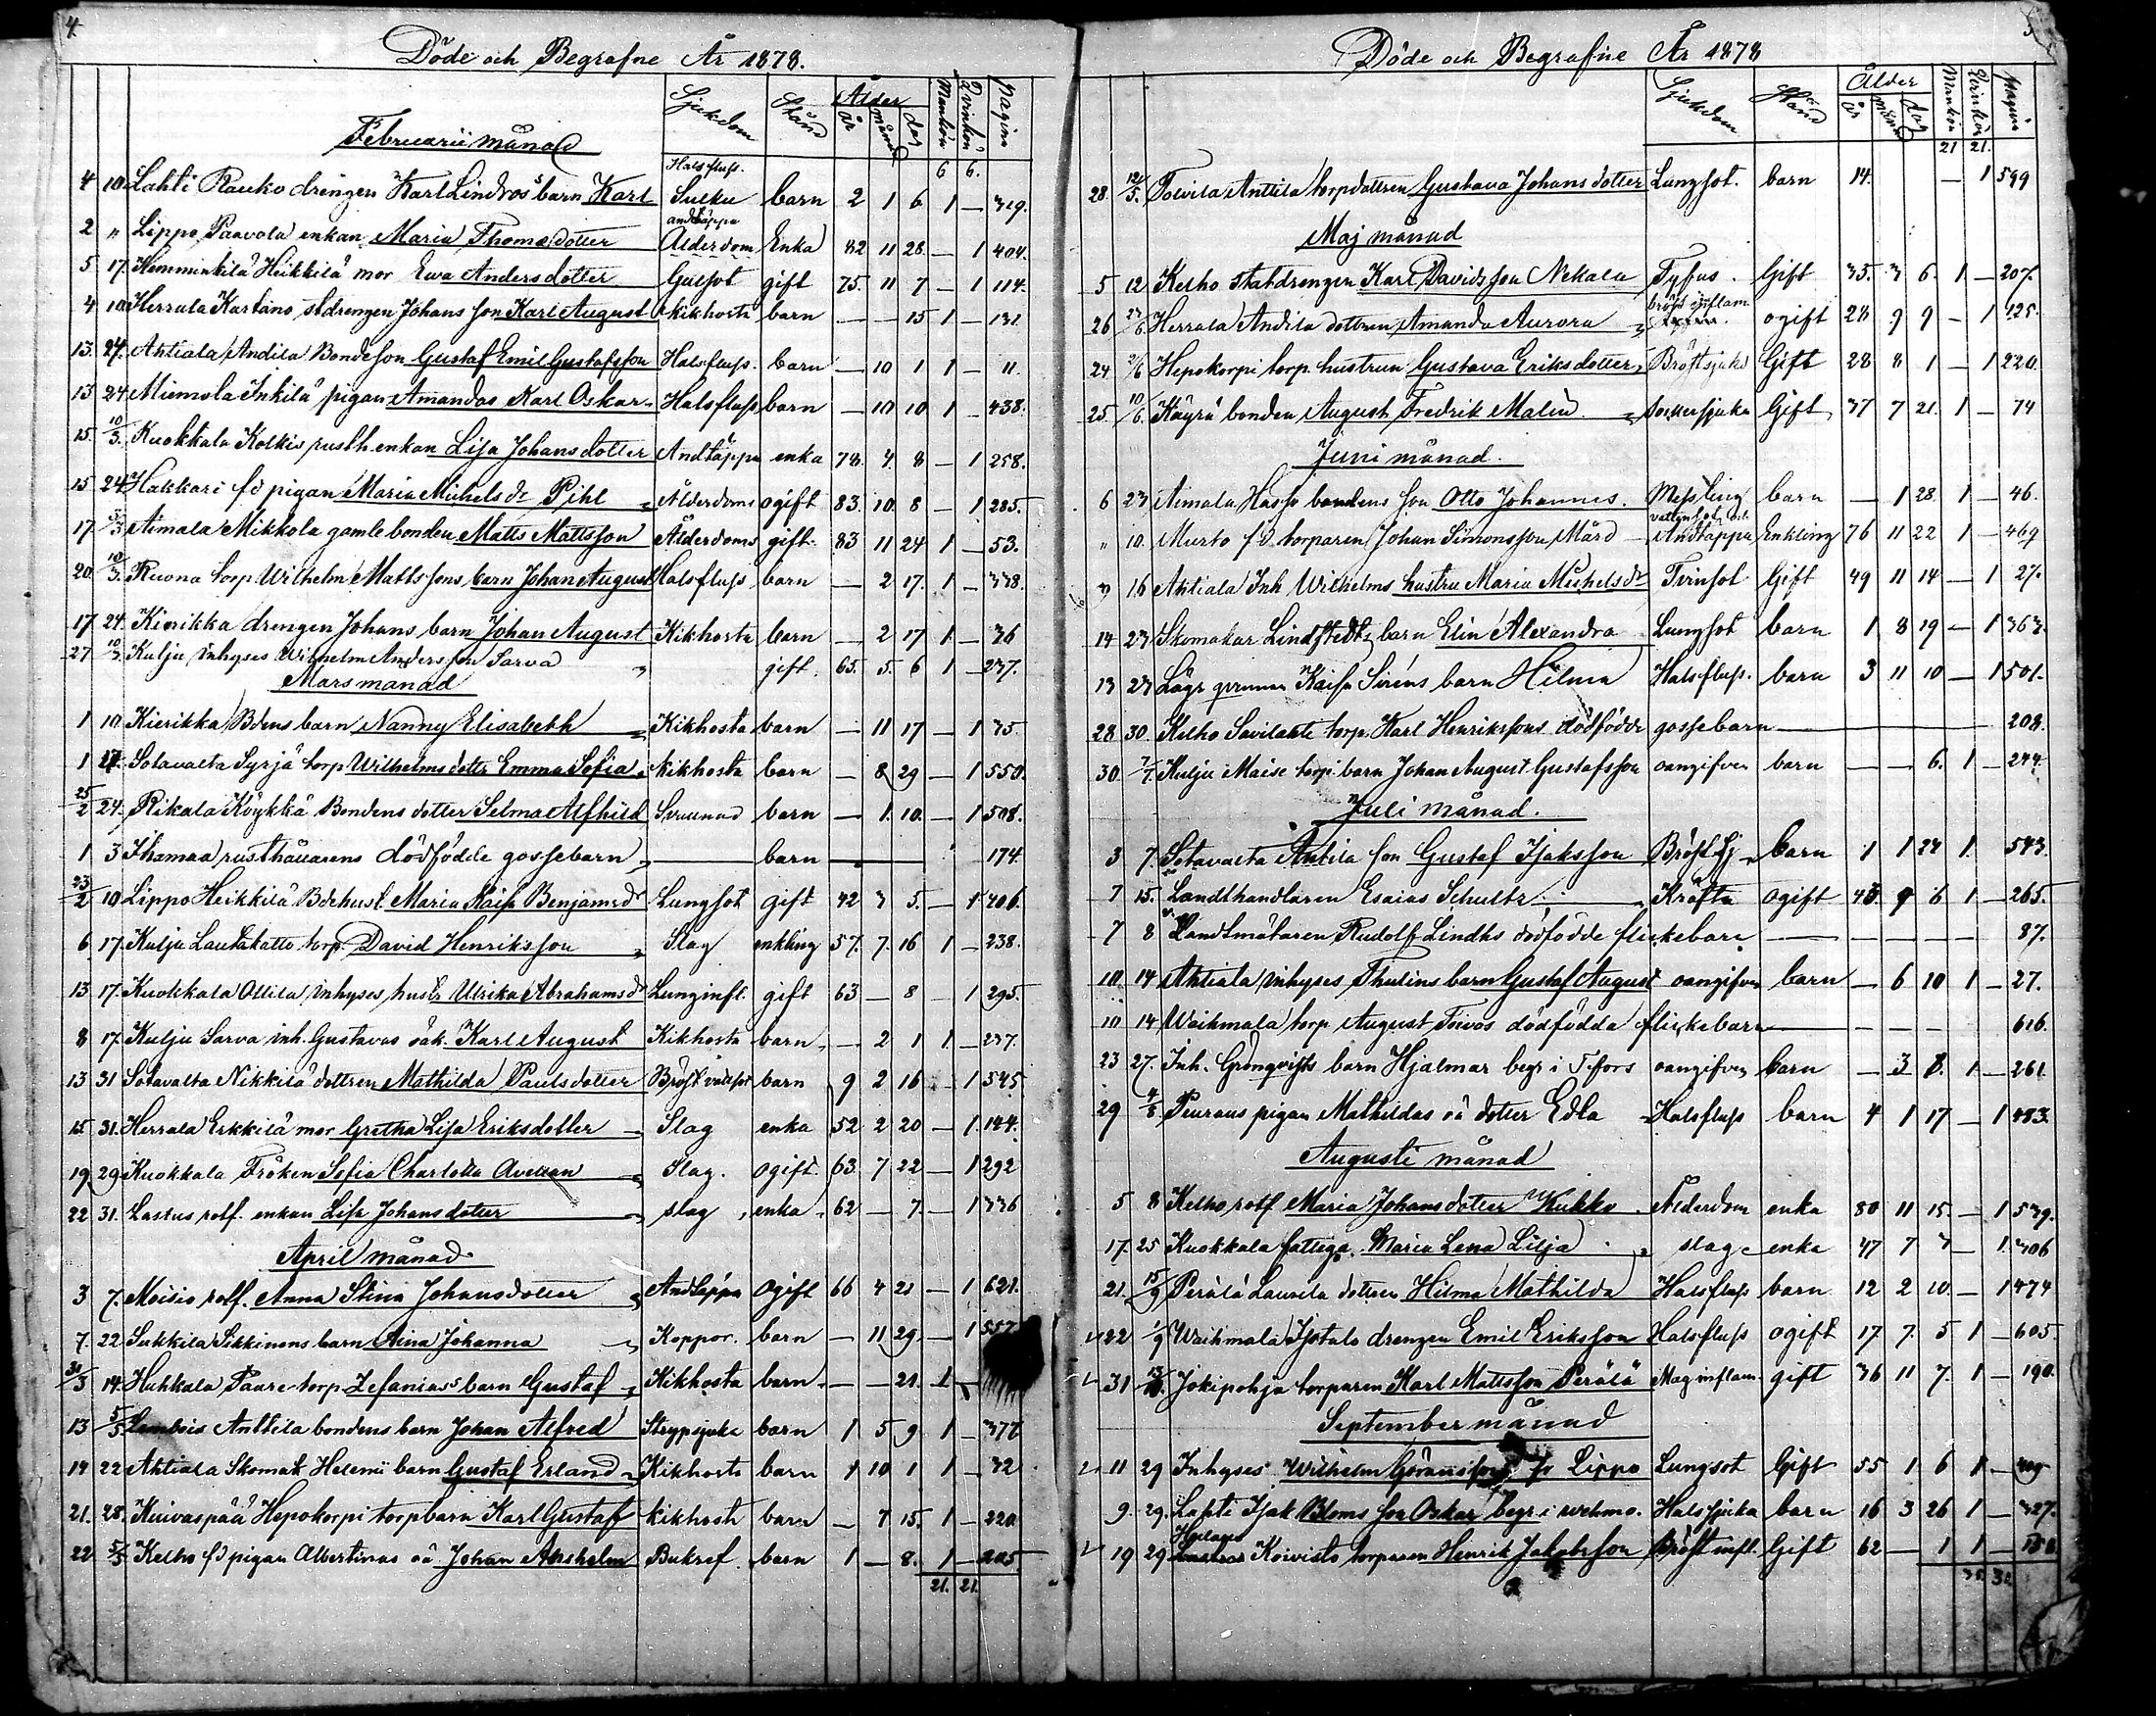 4.
Döde och Begrafne År 1878.
Sjukdom Stånd Ålder år månad dag Mankön Qvinkön pagina
Februarii månad
6 6.
4 10 Lahti Rauko drengen Karl Lindros barn Karl Halsfluss. barn 2 1 6 1 — 319.
2 " Lippo Paavola enkan Maria Thomasdotter andtäppa Ålderdom Enka 82 11 28 — 1 404.
5 17. Hemminkilä Heikkilä mor Ewa Andersdotter Gulsot gift 75. 11 7 — 1 114.
4 10 Herrala Kartano stdrengen Johans son Karl August kikhosta barn — — 15 1 — 131
13. 24. Ahtiala Andila Bondeson Gustaf Emil Gustafsson Halsfluss. barn — 10 1 1 — 11.
13 24 Miemola Inkilä pigan Amandas Karl Oskar Halsfluss barn — 10 10 1 — 438.
15. 10/3. Kuokkala Kolkis rusth enkan Lisa Johansdotter Andtäppa enka 78. 4. 8 — 1 258.
15 24 Hakkari fd pigan Maria Michels dr Pihl Ålderdoms ogift 83. 10. 8 — 1 285.
17 3/3 Aimala Mikkola gamle bonden Matts Mattsson Ålderdoms gift. 83 11 24 1 — 53.
20. 10/3. Ruona torp Wilhelm Mattssons barn Johan August Halsfluss barn — 2 17. 1 — 338.
17 24. Kierikka drengen Johans barn Johan August Kikhosta barn — 2 17 1 — 36
27 10/3 Kulju inhyses Wilhelm Andersson Sarva " gift. 65. 5. 6 1 — 237.
Mars månad
1 10 Kierikka Bdens barn Nanny Elisabeth Kikhosta barn — 11 17 — 1 35.
1 17. Sotavalta Syrjä torp Wilhelms dottr Emma Sofia kikhosta barn — 8 29 — 1 550.
25/2 24. Rikala Köykkä Bondens dotter Selma Alfhild barn — 1. 10. — 1 508.
1 3 rusthållarens dödfödde gossebarn — barn — 174.
23/2 10 Lippo Heikkilä Bdehust. Maria Kaisa Benjamsdr Lungsot gift 42 3 5. — 1 406.
6. 17. Kulju Lautakatto torp. David Henriksson Slag enkling 57. 7. 16 1 — 238.
13 17. Kuokkala Ollila inhyses hustr Ulrika Abrahamsdr Lunginfl. gift 63 — 8 — 1 295.
8 17. Kulju Sarva inh. Gustavas oäk. Karl August Kikhosta barn — 2 1 1. — 237.
13 31 Sotavalta Nikkilä dottren Mathilda Paulsdotter barn 9 2 16 — 1 545.
15 31. Herrala Erkkilä mor Gretha Lisa Eriksdotter Slag enka 52 2 20 — 1. 124.
19 29 Kuokkala Fröken Sofia Charlotta Avellan Slag. ogift. 63. 7 22 — 1 292
22 31. Lastus rotf. enkan Lisa Johansdotter slag enka 62 — 7. — 1 336
April månad
3 7. Moisio rotf. Anna Stina Johansdotter Andtäppa Ogift 66 4 21 — 1 621.
7. 22 Sukkila Sikkinens barn Aina Johanna Koppor. barn — 11 29. — 1 557
31/3 14. Huhkala Paare torp Zefanias's barn Gustaf Kikhosta barn — — 21. 1 —
13 5/5 Lembois Anttila bondens barn Johan Alfred Strypsjuka barn 1 5 9 1 — 377.
14 22 Ahtiala Skomak Helenii barn Gustaf Erland Kikhosta barn 1 10 1 1 — 32
21. 28. Kuivaspää Hepokorpi torpbarn Karl Gustaf kikhosta barn — 7 15. 1 — 220
22 5/5 Kelho fd pigan Albertinas oä Johan Anshelm Bukref barn 1 — 8. 1 — 205.
21. 21.
5
Döde och Begrafne År 1878
Sjukdom Stånd Ålder år månad dag Mankön Qvinkön Pagina
21 21.
28. 12/5. Toivila Anttila torpdottren Gustava Johansdotter Lungsot. barn 14. — 1 599
Maj månad
5 12 Kelho statdrengen Karl Davidsson Nekala Tyfus. Gift 35. 3 6. 1 — 207.
26 23/6 Herrala Andila dottren Amanda Aurora bröst inflam. ogift 28 9 9 — 1 125.
24 2/6 Hepokorpi torp. hustrun Gustava Eriksdotter Bröstsjuka Gift 28 8 1 — 1 220.
25. 10/6. Käyrä bonden August Fredrik Malin sockersjuka Gift 37 7 21. 1 — 74
Juni månad.
6 23 Aimala Hasso bondens son Otto Johannes. Messling barn — 1 28. 1 — 46.
" 10. Murto fd torparen Johan Simonsson Mård vattusot och Andtäppa Enkling 76 11 22 1 — 469
9 16 Ahtiala Inh Wilhelms hustru Maria Michelsdr Tvinsot Gift 49 11 14 — 1 27.
14 23 Skomakar Lindstedts barn Elin Alexandra Lungsot barn 1 8 19 — 1 363.
13 23 Kaisa Siréns barn Hilma Halsfluss. barn 3 11 10 — 1 501.
28. 30. Kelho Savilahti torp. Karl Henrikssons dödfödde gossebarn — 208.
30. 7/7. Kulju Maise torp. barn Johan August Gustafsson oangifven barn — — 6. 1 — 244.
Juli månad.
3 7. Sotavalta Antila son Gustaf Isaksson Bröst sj barn 1 1 24 1. 543.
7 15. Landthandlaren Esaias Schultz Kräfta ogift 43. 9 6 1 — 265.
7 8 Landtmätaren Rudolf Lindhs dödfödde flickebarn — 87.
10. 14 Ahtiala inhyses Thulins barn Gustaf August oangifven barn — 6 10 1 — 27.
10 14 Waihmala torp August Toivos dödfödda flickebarn — 616.
23 27. Inh. Grönqvists barn Hjalmar begr i T.fors oangifven barn — 3 8. 1. — 261.
29 4/8 Peuraus pigan Mathildas oä dotter Edla Halsfluss barn 4 1 17 — 1 483.
Augusti månad
5 8 Kelho rotf Maria Johansdotter Kukko Ålderdom enka 80 11 15. — 1 539.
17. 25 Kuokkala fattiga. Maria Lena Lilja slag enka 47 7 7 — 1. 306
21. 15/9 Perälä Laurila dottren Hilma Mathilda Halsfluss barn 12 2 10. — 1 474
22 1/9 Waihmala Isotalo drengen Emil Eriksson Halsfluss ogift 17. 7. 5 1 — 605
31 Jokipohja torparen Karl Mattsson Perälä Mag inflam gift 36 11 7. 1 — 190.
September månad
11 29 Inhyses Wilhelm Göransson fr Lippo Lungsot Gift 55 1 6 1 — 409
9. 29. Lahti Isak Bloms son Oskar begr i Halssjuka barn 16 3 26 1 — 327.
19 29 Koivisto torparen Henrik Jakobsson Bröst infl. Gift 62 — 1 1 —